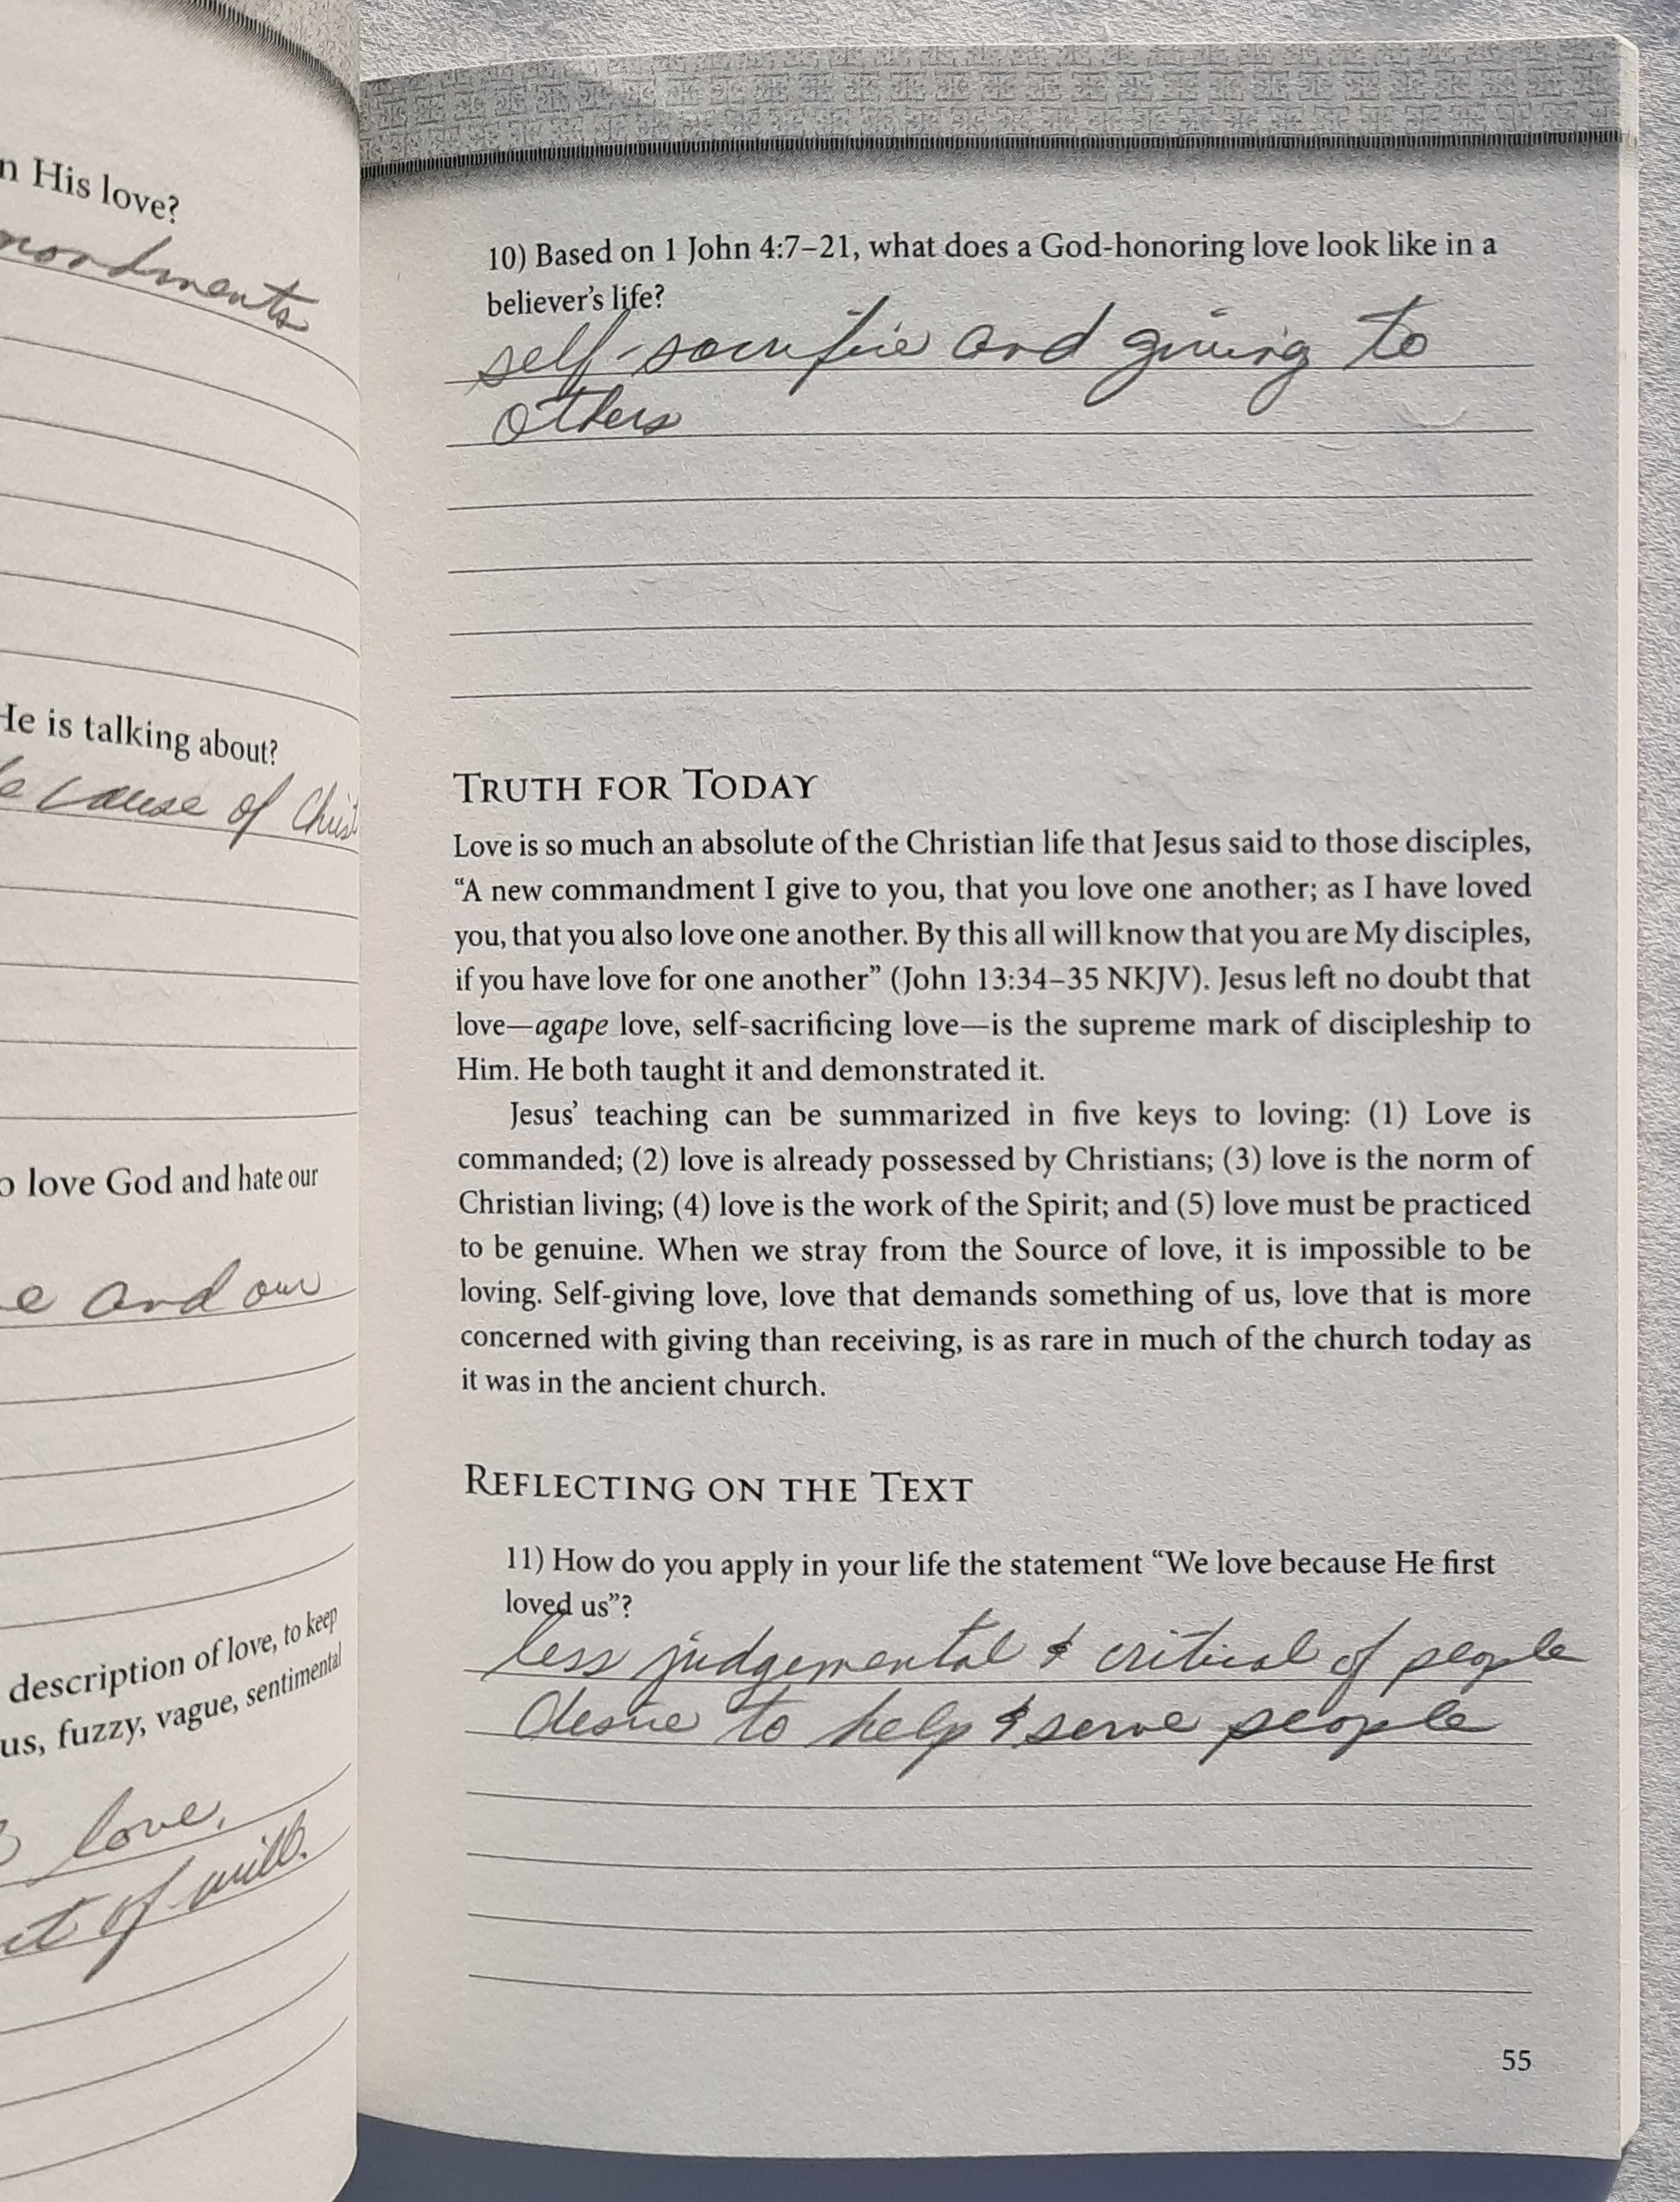 n His love?
He is talking about?
cause of Christ
o love God and hate our
e and our
description of love, to keep
us, fuzzy, vague, sentimental
love.
of will.
10) Based on 1 John 4:7–21, what does a God-honoring love look like in a
believer's life?
self-sacrifice and giving to
others
TRUTH FOR TODAY
Love is so much an absolute of the Christian life that Jesus said to those disciples,
“A new commandment I give to you, that you love one another; as I have loved
you, that you also love one another. By this all will know that you are My disciples,
if you have love for one another” (John 13:34–35 NKJV). Jesus left no doubt that
love—agape love, self-sacrificing love—is the supreme mark of discipleship to
Him. He both taught it and demonstrated it.
Jesus’ teaching can be summarized in five keys to loving: (1) Love is
commanded; (2) love is already possessed by Christians; (3) love is the norm of
Christian living; (4) love is the work of the Spirit; and (5) love must be practiced
to be genuine. When we stray from the Source of love, it is impossible to be
loving. Self-giving love, love that demands something of us, love that is more
concerned with giving than receiving, is as rare in much of the church today as
it was in the ancient church.
REFLECTING ON THE TEXT
11) How do you apply in your life the statement “We love because He first
loved us”?
less judgemental & critical of people
desire to help & serve people
55